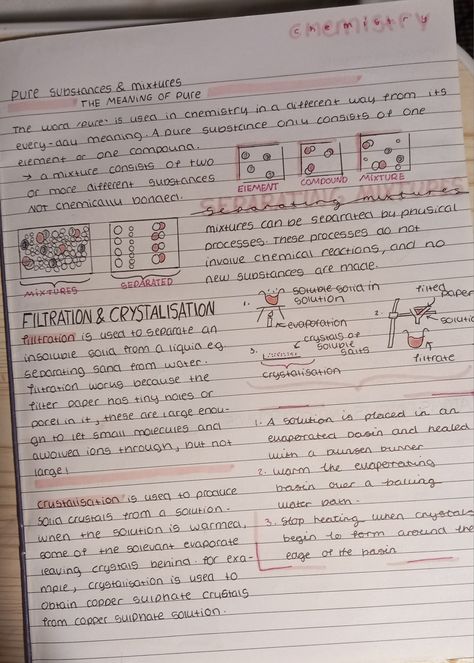 chemistry
pure substances & mixtures
THE MEANING OF PURE
The word 'pure' is used in chemistry in a different way from its
every-day meaning. A pure substance only consists of one
element or one compound.
→ a mixture consists of two
or more different substances
NOT chemically bonded.
ELEMENT
COMPOUND
MIXTURE
separating mixtures
mixtures can be separated by physical
processes. These processes do not
involve chemical reactions, and no
new substances are made.
MIXTURES
SEPARATED
FILTRATION & CRYSTALISATION
filtration is used to separate an
insoluble solid from a liquid eg.
separating sand from water.
filtration works because the
filter paper has tiny holes or
pores in it, these are large enou-
gh to let small molecules and
through, but not
large!
1.
soluble solid in
solution
evaporation
2.
paper
solution
filtrate
3.
crystals of
soluble
salts
crystalisation
1. A solution is placed in an
evaporated basin and heated
with a bunsen burner
2. warm the evaporating
basin over a
water bath.
3. stop heating when crystals
begin to form around the
edge of the basin
crystalisation is used to produce
solid crystals from a solution.
when the solution is warmed,
some of the evaporate
leaving crystals behind. for exa-
mple, crystalisation is used to
obtain copper sulphate crystals
from copper sulphate solution.